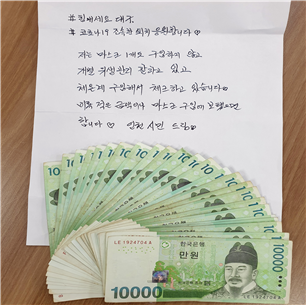 # 힘내세요 대구
# 코로나19 조속한 퇴치 응원합니다 ♡
저는 마스크 1개도 구입하지 않고
개인 위생관리 잘하고 있고
체온계 구입해서 체크하고 있습니다
비록 적은 금액이나 마스크 구입에 보탰으면
합니다 ♡ 인천 시민 드림
한국은행
만원
LE1924704A
10000
10000